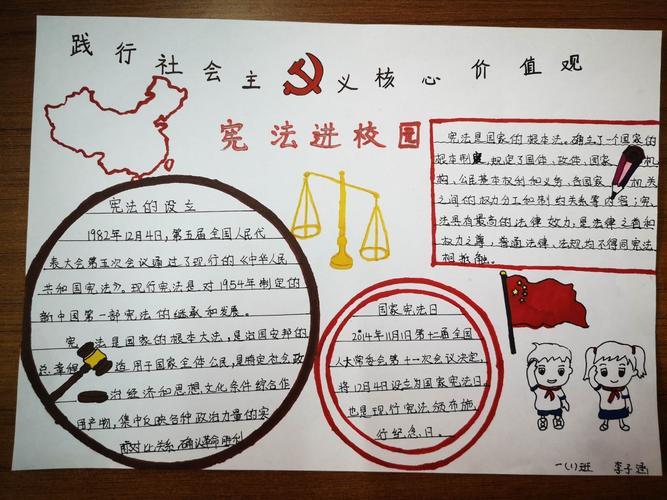 践行社会主义核心价值观
宪法进校园
宪法的设立
1982年12月4日,第五届全国人民代
表大会第五次会议通过了现行的《中华人民
共和国宪法》。现行宪法是对1954年制定的
新中国第一部宪法的继承和发展。
宪法是国家的根本大法,是治国安邦的
总章程 适用于国家全体公民,是特定社会政
治经济和思想文化条件综合作
用产物,集中反映各种政治力量的实
际对比关系,确认革命胜利
国家宪法日
2014年11月1日第十一届全国
人大常委会第十一次会议决定,
将12月4日设立为国家宪法日。
也是现行宪法颁布施
行纪念日。
宪法是国家的根本法。确立了一个国家的
根本制度,规定了国体、政体、国家机
构、公民基本权利和义务,各国家机关
之间的权力分工和制约关系等内容;宪
法具有最高的法律效力,是法律之首和
权力之尊,普通法律、法规均不得同宪法
相抵触。
一(1)班 李子涵